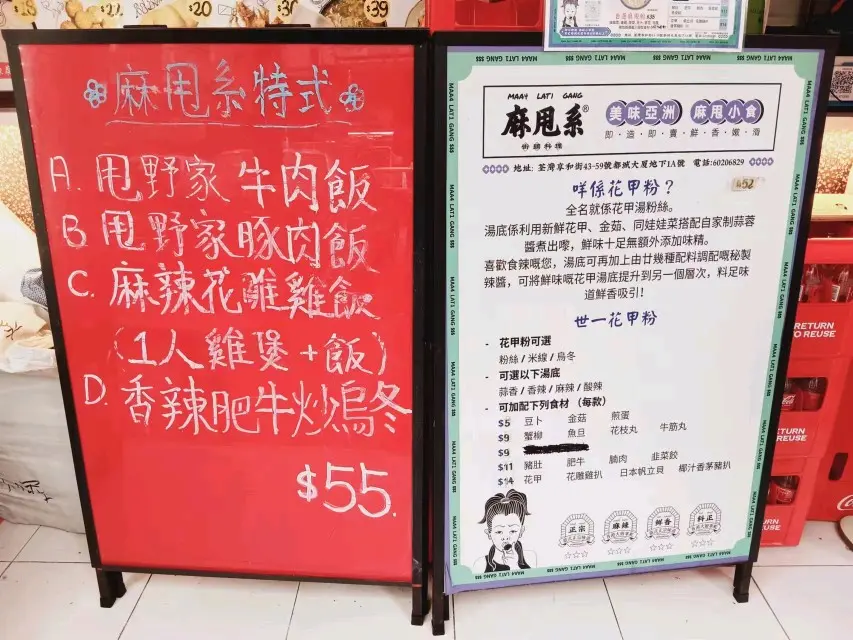 $20
$30
$39
麻甩系特式
A. 甩野家牛肉飯
B. 甩野家豚肉飯
C. 麻辣花雕雞飯
(1人雞煲+飯)
D. 香辣肥牛炒烏冬
$55.
MAA4 LAT1 GANG
麻甩系®
街頭料理
美味亞洲 麻甩小食
即·造·即·賣·鮮·香·嫩·滑
地址: 荃灣享和街43-59號都城大厦地下1A號 電話:60206829
咩係花甲粉？
$52
全名就係花甲湯粉絲。
湯底係利用新鮮花甲、金菇、同娃娃菜搭配自家制蒜蓉
醬煮出嚟，鮮味十足無額外添加味精。
喜歡食辣嘅您，湯底可再加上由廿幾種配料調配嘅秘製
辣醬，可將鮮味嘅花甲湯底提升到另一個層次，料足味
道鮮香吸引！
世一花甲粉
- 花甲粉可選
粉絲/米線/烏冬
- 可選以下湯底
蒜香/香辣/麻辣/酸辣
- 可加配下列食材（每款）
$5 豆卜 金菇 煎蛋
$9 蟹柳 魚旦 花枝丸 牛筋丸
$9
$11 豬肚 肥牛 腩肉 韭菜餃
$14 花甲 花雕雞扒 日本帆立貝 椰汁香茅豬扒
正宗
麻辣
鮮香
料正
MAA4 LAT1 GANG $$$
RETURN
TO REUSE